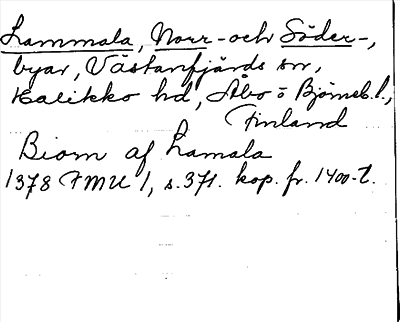 Lammala, Norr- och Söder-,
byar, Västanfjärds sn,
Halikko hd, Åbo o Björneb. l.,
Finland
Biorn af Lamala
1378 FMU 1, s. 371. kop. fr. 1400-t.